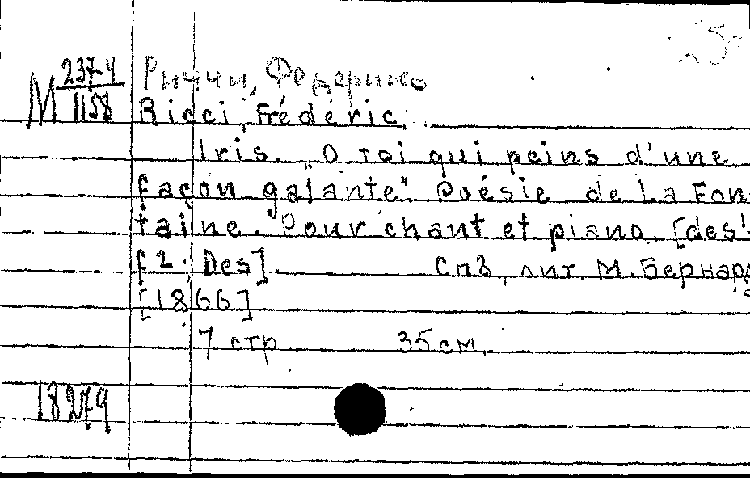 М 2374/1158
Риччи, Федерико
Ricci, Frédéric.
Iris. "O toi qui peins d'une
façon galante". Poésie de La Fon-
taine. Pour chant et piano. [des'-
f2. Des] Спб, лит. М. Бернард
[1866]
7 стр 35 см.
18279